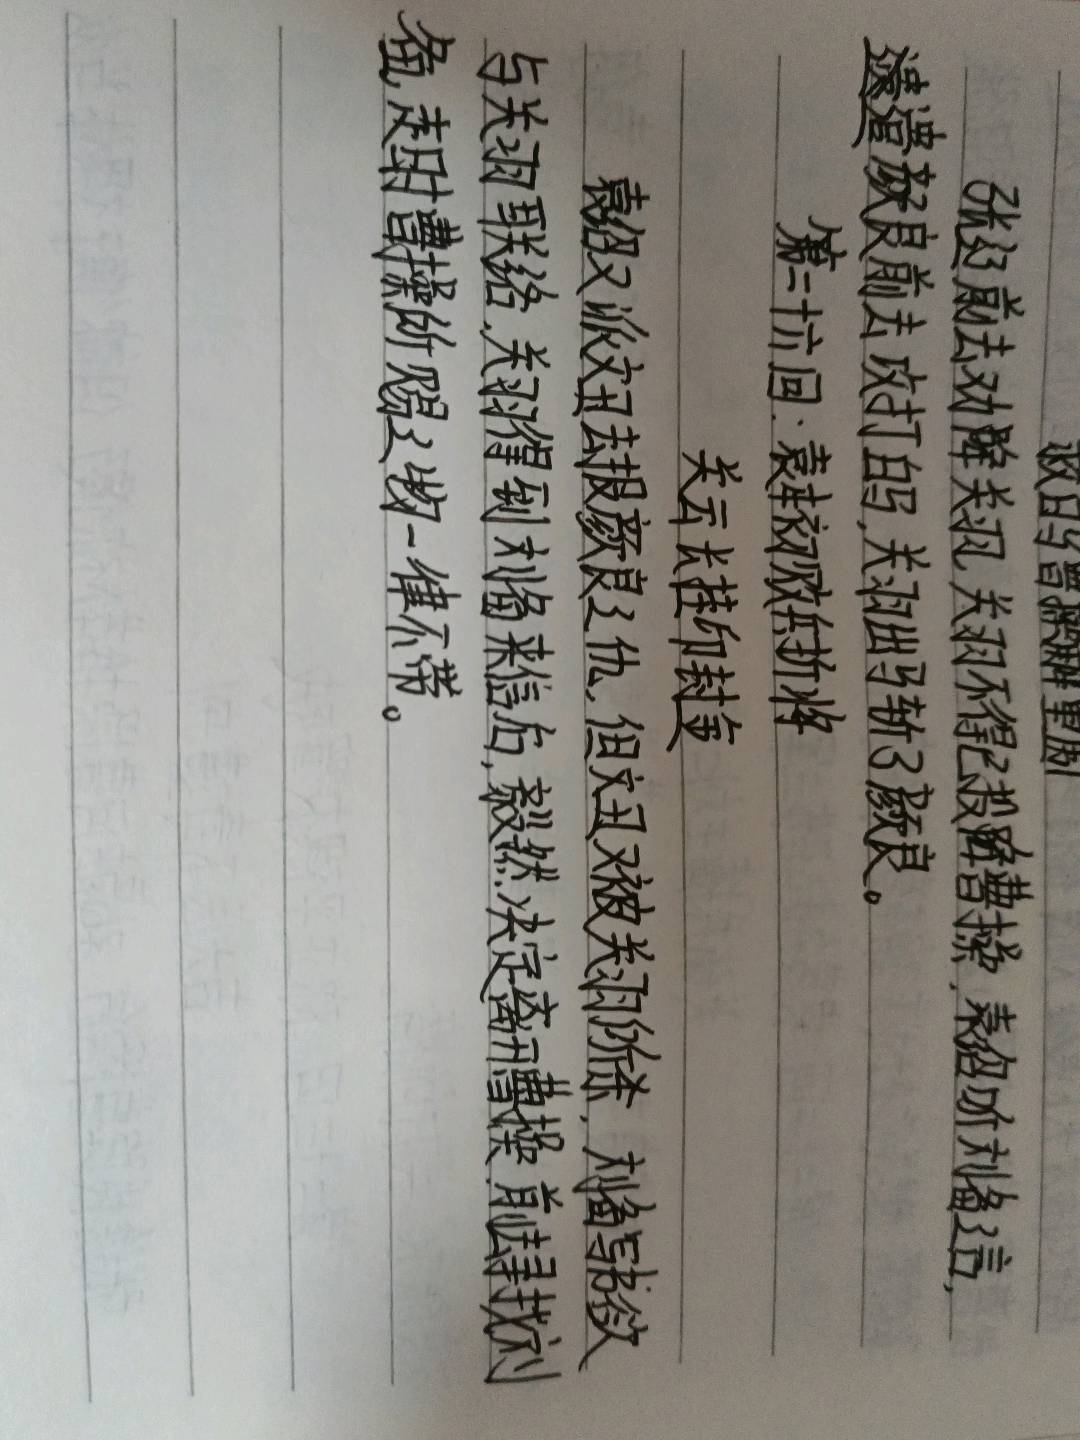 救白马曹操解重围
张辽前去劝降关羽,关羽不得已投降曹操,袁绍听刘备之言,
遂遣颜良前去攻打白马,关羽出马斩了颜良。
第二十六回:袁本初败兵折将
关云长挂印封金
袁绍又派文丑去报颜良之仇,但文丑又被关羽所杀,刘备写书欲
与关羽联络,关羽得到刘备来信后,毅然决定离开曹操,前去寻找刘
备,走时曹操所赐之物一律不带。